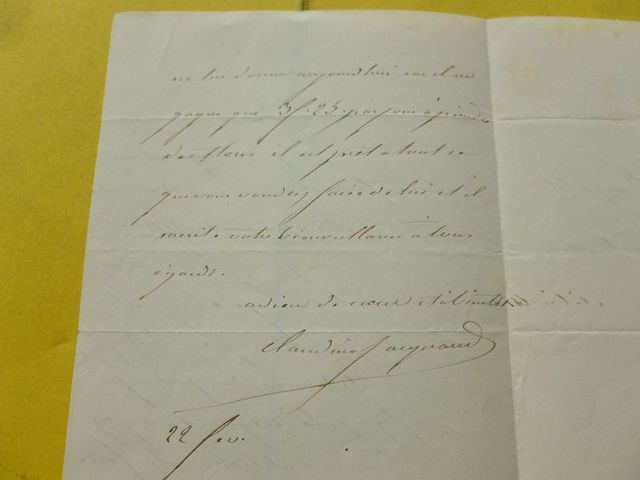 ne lui donne aujourd'hui car il ne
gagne que 3f.25 par jour à peindre
des fleurs il est prêt a tout ce
que vous voudrez faire de lui et il
merite votre bienveillance à tous
égards.
adieu de cœur et à bientôt
Claudius Jacquand
22 fev.